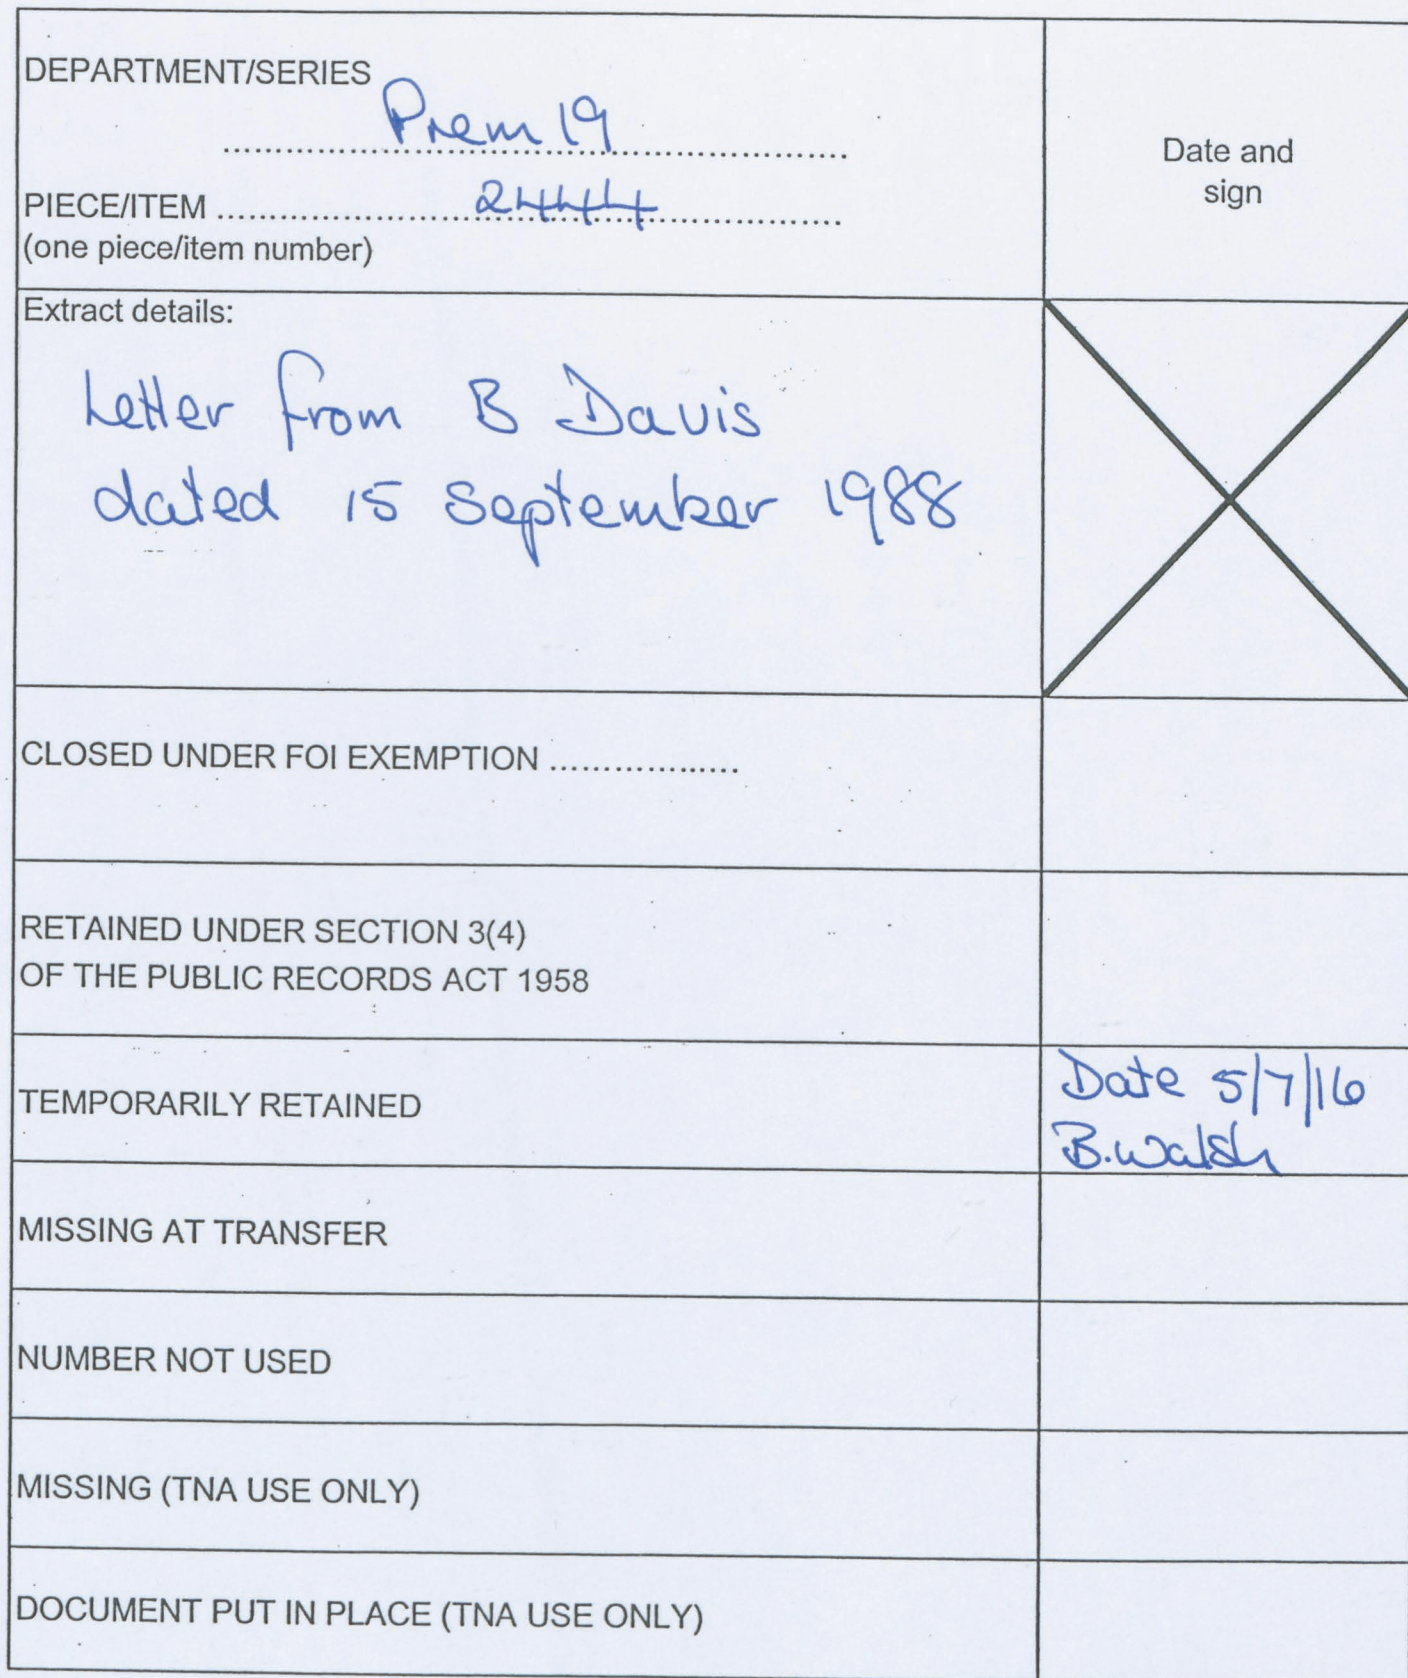 DEPARTMENT/SERIES
Prem 19
Date and
sign
PIECE/ITEM ........................ 2444
(one piece/item number)
Extract details:
Letter from B Davis
dated 15 September 1988
CLOSED UNDER FOI EXEMPTION ...................
RETAINED UNDER SECTION 3(4)
OF THE PUBLIC RECORDS ACT 1958
TEMPORARILY RETAINED
Date 5/7/16
B. Walsh
MISSING AT TRANSFER
NUMBER NOT USED
MISSING (TNA USE ONLY)
DOCUMENT PUT IN PLACE (TNA USE ONLY)